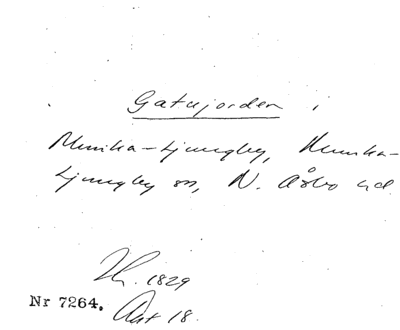 Gatujorden
Munka-Ljungby, Munka-
Ljungby sn, N. Åsbo hd
1829
Nr 7264. Akt 18.